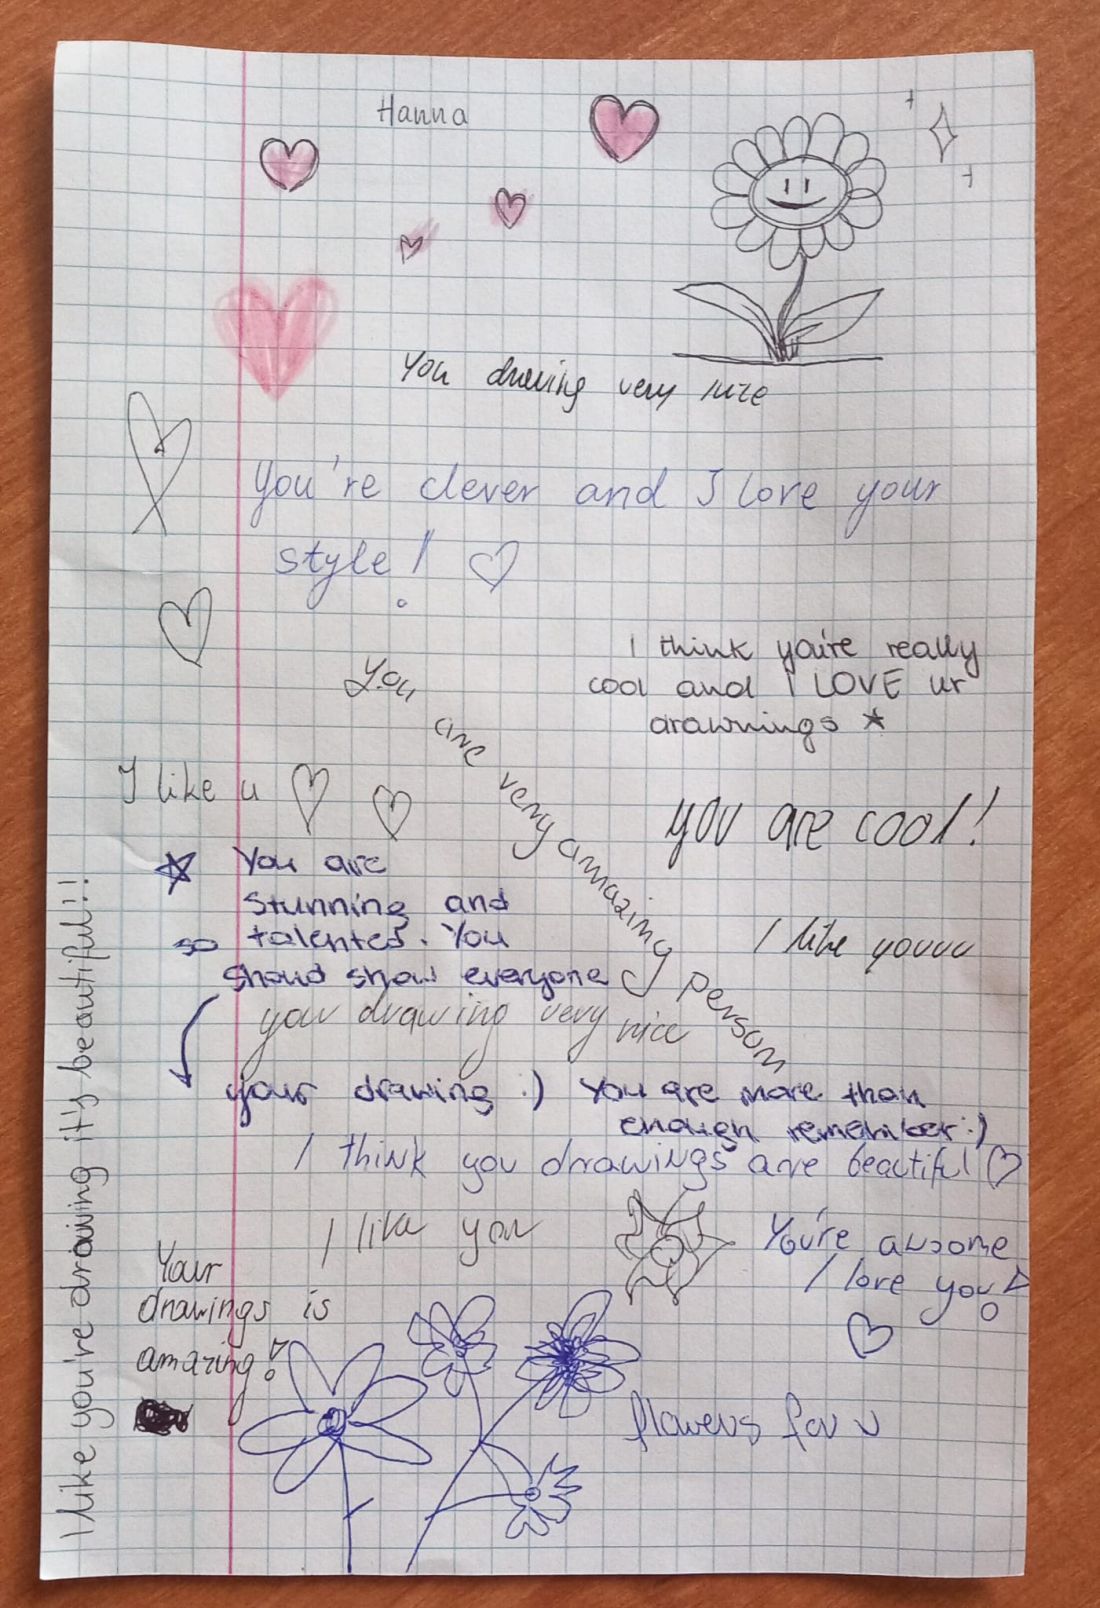 Hanna
You drawing very nice
You're clever and I love your
style!
I think you're really
cool and I LOVE ur
drawnings
You are very amazing person
I like u
you are cool!
You are
stunning and
so talented. You
shoud show everyone
I like youuu
your drawing very nice
your drawing :) You are more than
enough remember :)
I think you drawings are beautiful
I like you
You're awsome
I love you!
Your
drawings is
amazing!
flowers for u
I like you're drawing it's beautiful!!